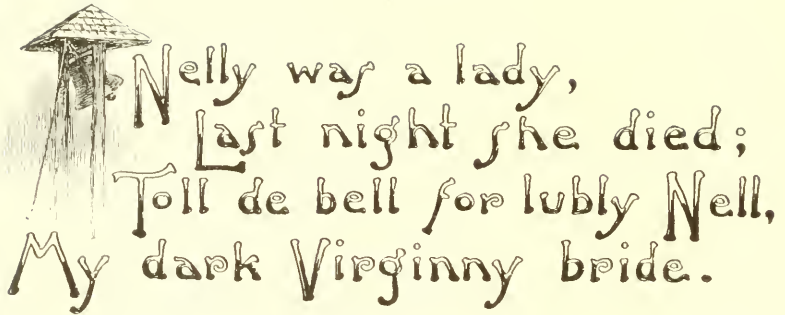 Nelly was a lady,
Last night she died;
Toll de bell for lubly Nell,
My dark Virginny bride.